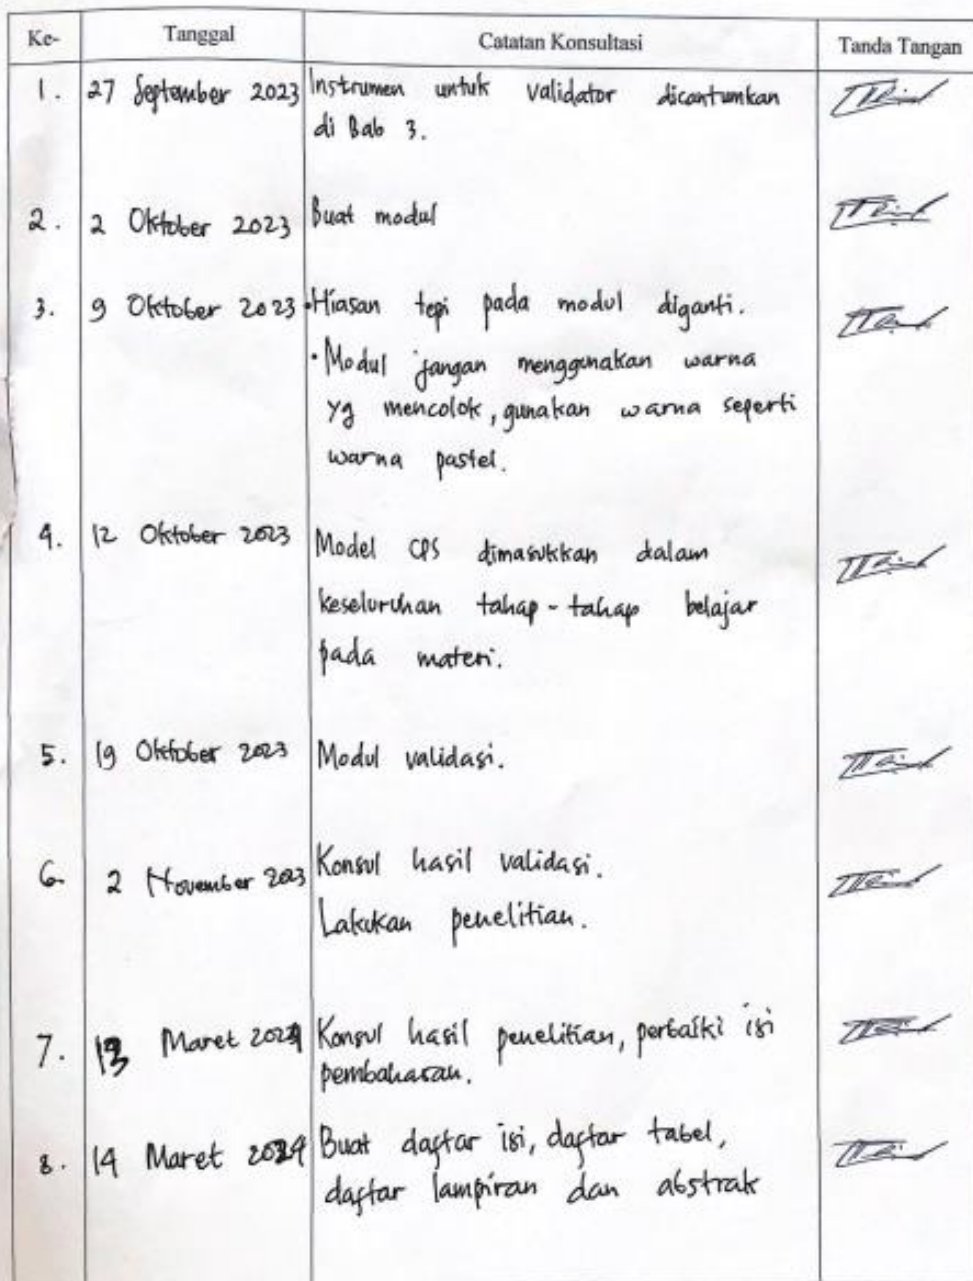 Ke- Tanggal Catatan Konsultasi Tanda Tangan
1. 27 September 2023 Instrumen untuk validator dicantumkan
di Bab 3.
2. 2 Oktober 2023 Buat modul
3. 9 Oktober 2023 • Hiasan tepi pada modul diganti.
• Modul jangan menggunakan warna
yg mencolok, gunakan warna seperti
warna pastel.
4. 12 Oktober 2023 Model CPS dimasukkan dalam
keseluruhan tahap-tahap belajar
pada materi.
5. 19 Oktober 2023 Modul validasi.
6. 2 November 2023 Konsul hasil validasi.
Lakukan penelitian.
7. 13 Maret 2024 Konsul hasil penelitian, perbaiki isi
pembahasan.
8. 14 Maret 2024 Buat daftar isi, daftar tabel,
daftar lampiran dan abstrak